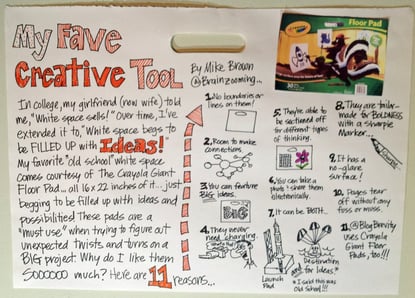 My Fave
Creative Tool
In college, my girlfriend (now wife) told
me, "White space sells!" Over time, I've
extended it to, "White space begs to
be FILLED UP with Ideas!"
My favorite "old school" white space
comes courtesy of The Crayola Giant
Floor Pad... all 16 x 22 inches of it... just
begging to be filled up with ideas and
possibilities! These pads are a
"must use" when trying to figure out
unexpected twists and turns on a
BIG project! Why do I like them
SOOOOOO much? Here are 11 reasons...
By Mike Brown
@Brainzooming...
1. No boundaries or
lines on them!
2. Room to make
connections.
3. You can feature
BIG ideas.
BIG
4. They never
need changing.
5. They're able to
be sectioned off
for different types
of thinking.
6. You can take a
photo & share them
electronically.
7. It can be BOTH...
Launch
Pad
Destination
for Ideas*
*I said this was
Old School!!!
Crayola
Floor Pad
30
8. They are tailor-
made for BOLDNESS
with a Sharpie
Marker...
9. It has a
no-glare
surface!
10. Pages tear
off without any
fuss or muss.
11. @BlogBrevity
uses Crayola
Giant Floor
Pads, too!!!